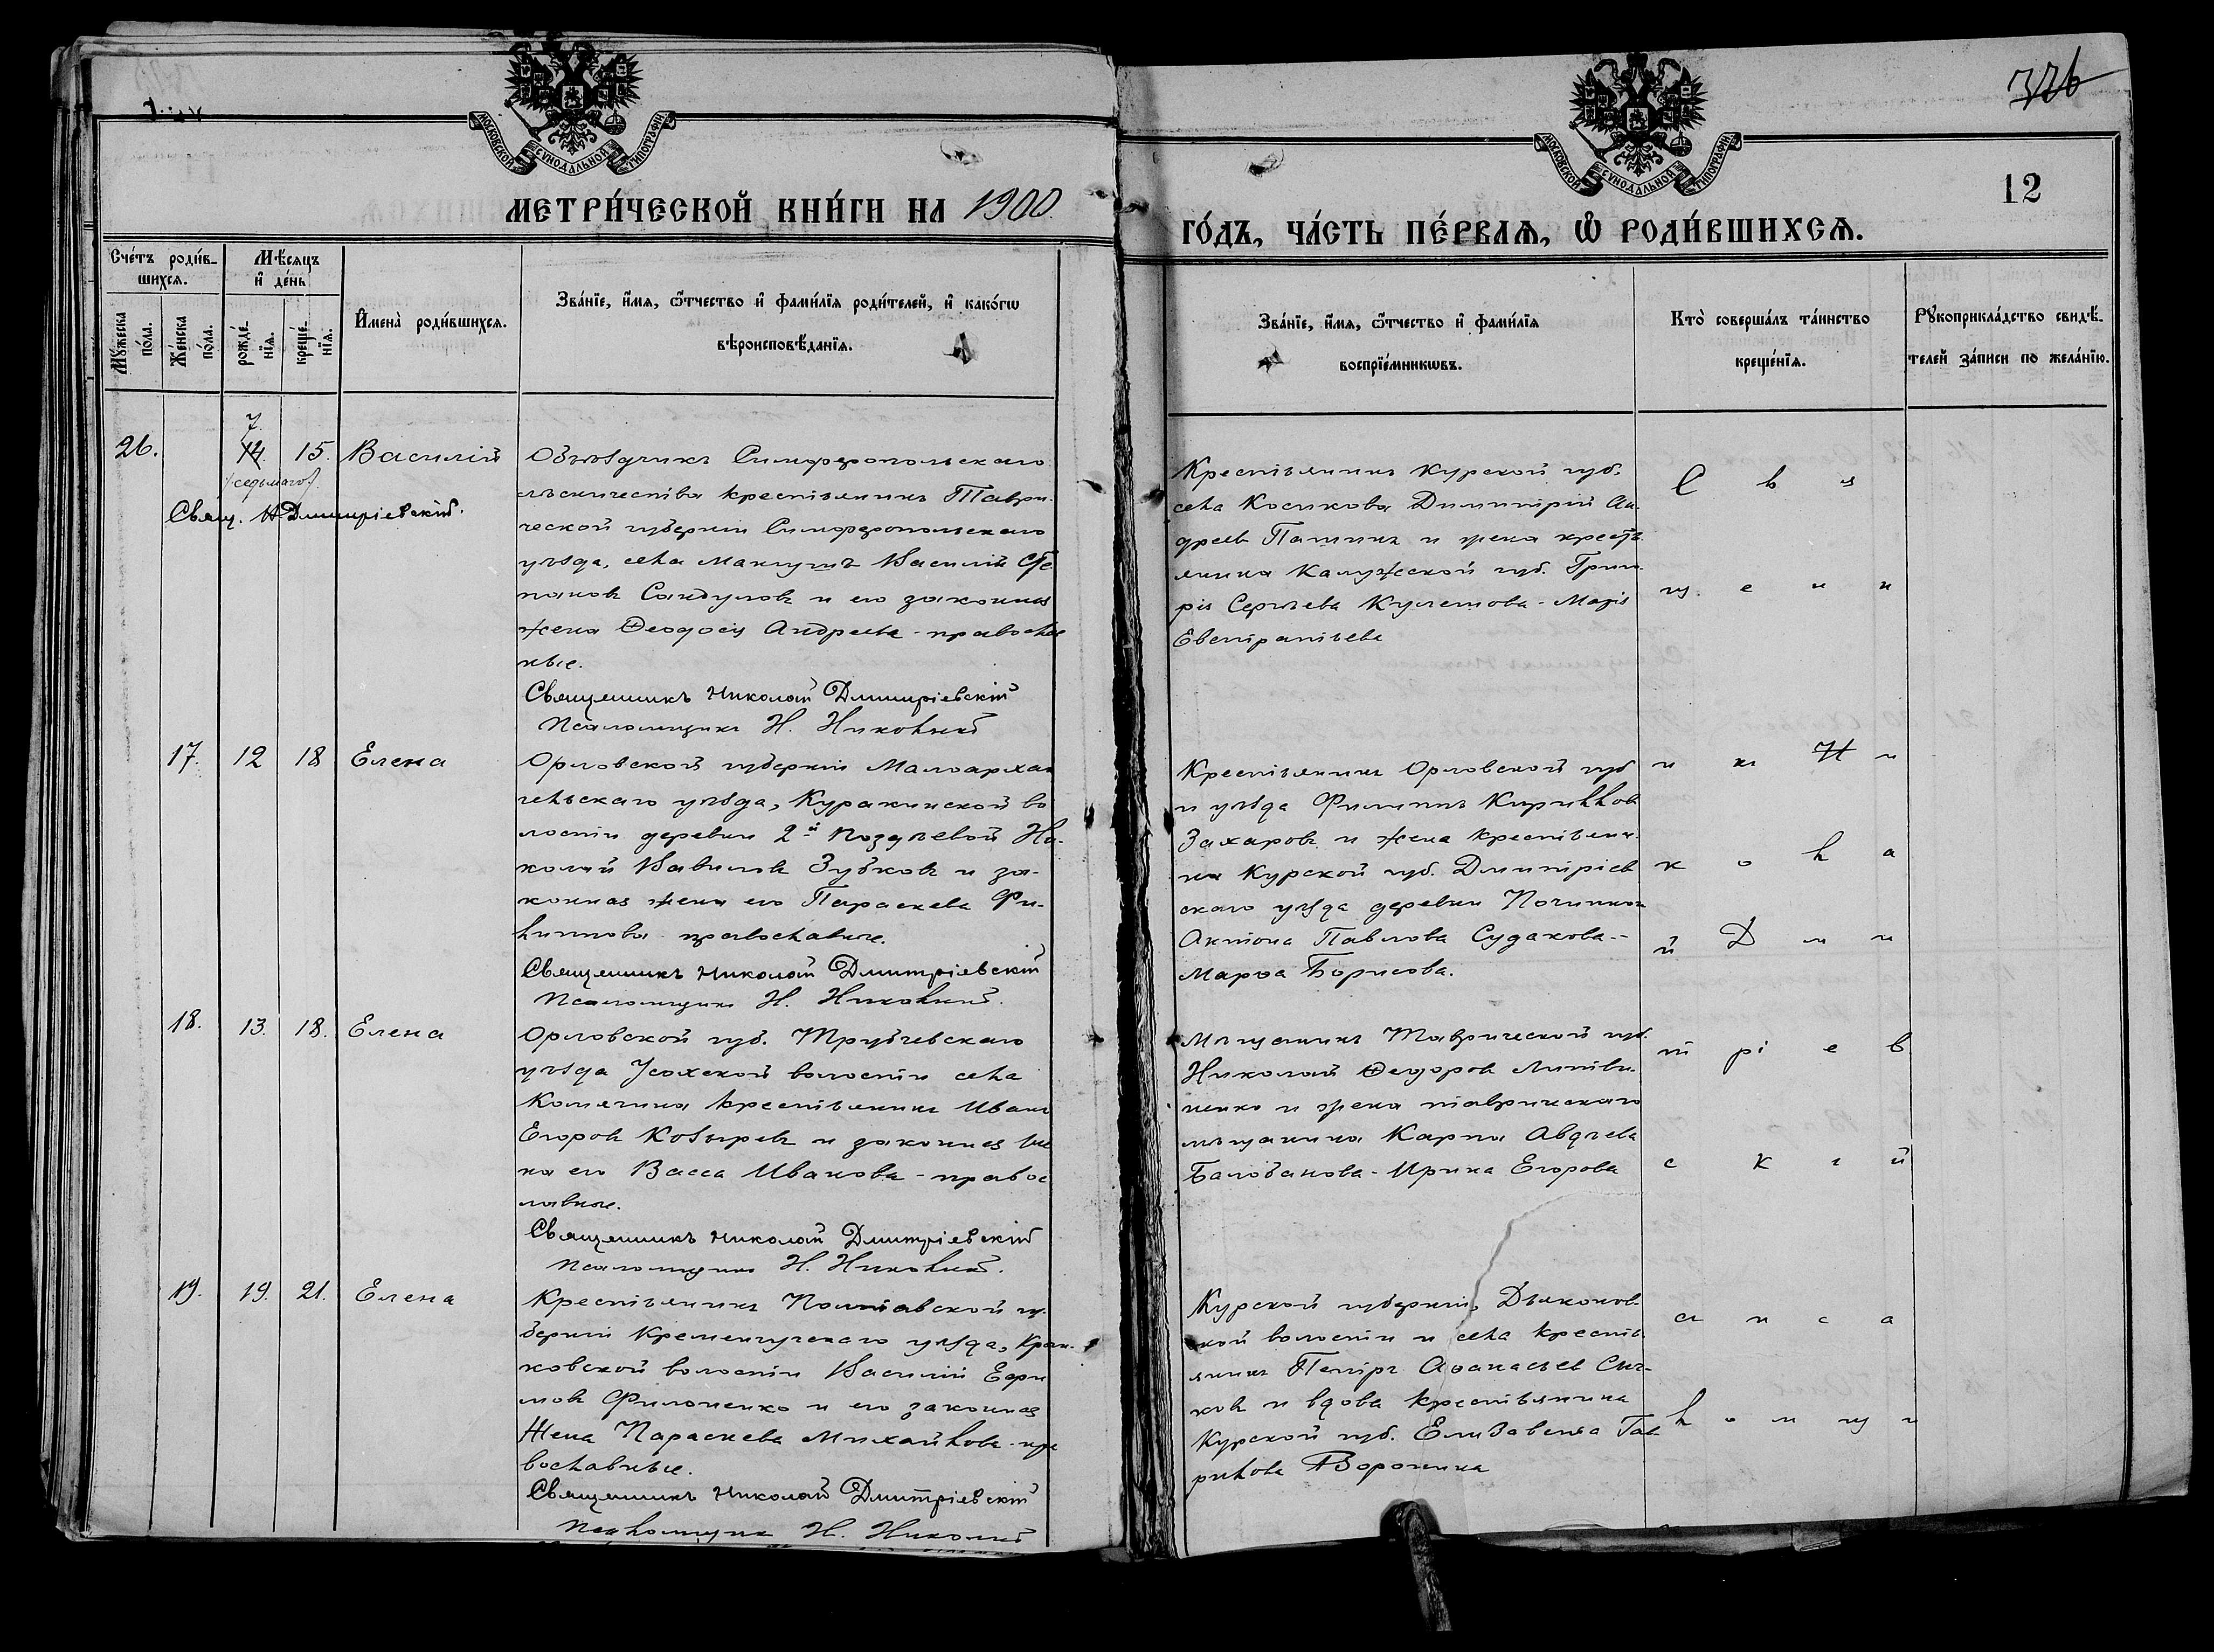 326
МОСКОВСКОЙ СѴНОДАЛЬНОЙ ТИПОГРАФІИ
МОСКОВСКОЙ СѴНОДАЛЬНОЙ ТИПОГРАФІИ
12
МЕТРИ́ЧЕСКОЙ КНИ́ГИ НА 1900.
ГО́ДЪ, ЧА́СТЬ ПЕ́РВАѦ, Ѡ҆ РОДИ́ВШИХСѦ.
Сче́тъ роди́в-
шихсѧ.
Мꙋ́жеска
по́ла.
Же́нска
по́ла.
Мѣ́сѧцъ
и҆ де́нь
рожде́-
нїѧ.
креще́-
нїѧ.
И҆мена̀ роди́вшихсѧ.
Зва́нїе, и҆́мѧ, ѻ҆́тчество и҆ фами́лїѧ роди́телей, и҆ како́гѡ
вѣроисповѣ́данїѧ.
Зва́нїе, и҆́мѧ, ѻ҆́тчество и҆ фами́лїѧ
воспрїе́мникѡвъ.
Кто̀ соверша́лъ та́инство
креще́нїѧ.
Рꙋкоприкла́дство свидѣ́-
телей за́писи по жела́нїю.
26.
7.
14. 15. Василій
/седьмаго/
Свящ. Н Дмитріевскій.
Объѣздчикъ Симферопольскаго
лѣсничества крестьянинъ Таври-
ческой губерніи Симферопольскаго
уѣзда, села Мангушъ Василій Сте
пановъ Сандуловъ и его законная
жена Ѳеодосія Андреева - православ
ные.
Священникъ Николай Дмитріевскій
Псаломщикъ Н.
Крестьянинъ Курской губ.
села Косикова Димитрій Ан
дреев Пашинъ и жена кресть
янина Калужской губ. Григо
рія Сергѣева Кулешова - Марія
Евстратіева
17. 12 18 Елена
Орловской губерніи Малоархан
гельскаго уѣзда, Куракинской во
лости деревни 2й Поздѣевой Ни-
колай Вавиловъ Зубковъ и за-
конная жена его Параскева Фи-
липпова православные.
Священникъ Николай Дмитріевскій
Псаломщикъ Н.
Крестьянинъ Орловской губ
и уѣзда Филиппъ Кирилловъ
Захаровъ и жена крестьяни-
на Курской губ. Дмитріев
скаго уѣзда деревни Починки
Антона Павлова Судакова -
Марѳа Борисова.
18. 13. 18. Елена
Орловской губ. Трубчевскаго
уѣзда Усохской волости села
Комягина крестьянинъ Иванъ
Егоровъ Козыревъ и законная же
на его Васса Иванова - правос
лавные.
Священникъ Николай Дмитріевскій
Псаломщикъ Н.
Мѣщанинъ Таврической губ.
Николай Ѳеодоровъ Литви-
ненко и жена таврическаго
мѣщанина Карпа Авдѣева
Балобанова - Ирина Егорова
19. 19. 21. Елена
Крестьянинъ Полтавской гу-
берніи Кременчугскаго уѣзда,
ковской волости Василій Ефи
мовъ Филоненко и его законная
Жена Параскева Михайлова - пра
вославные.
Священникъ Николай Дмитріевскій
Псаломщикъ Н.
Курской губерніи, Дьяконов-
кой волости и села кресть
янинъ Петръ Аѳанасьев Сыч-
ковъ и вдова крестьянина
Курской губ. Елизавета Гав
рилова Воронина
С в я
щ е н н
и к Н и
к о л а
й Д м и
т р і е в
с к і й
п с а
л о м щ и